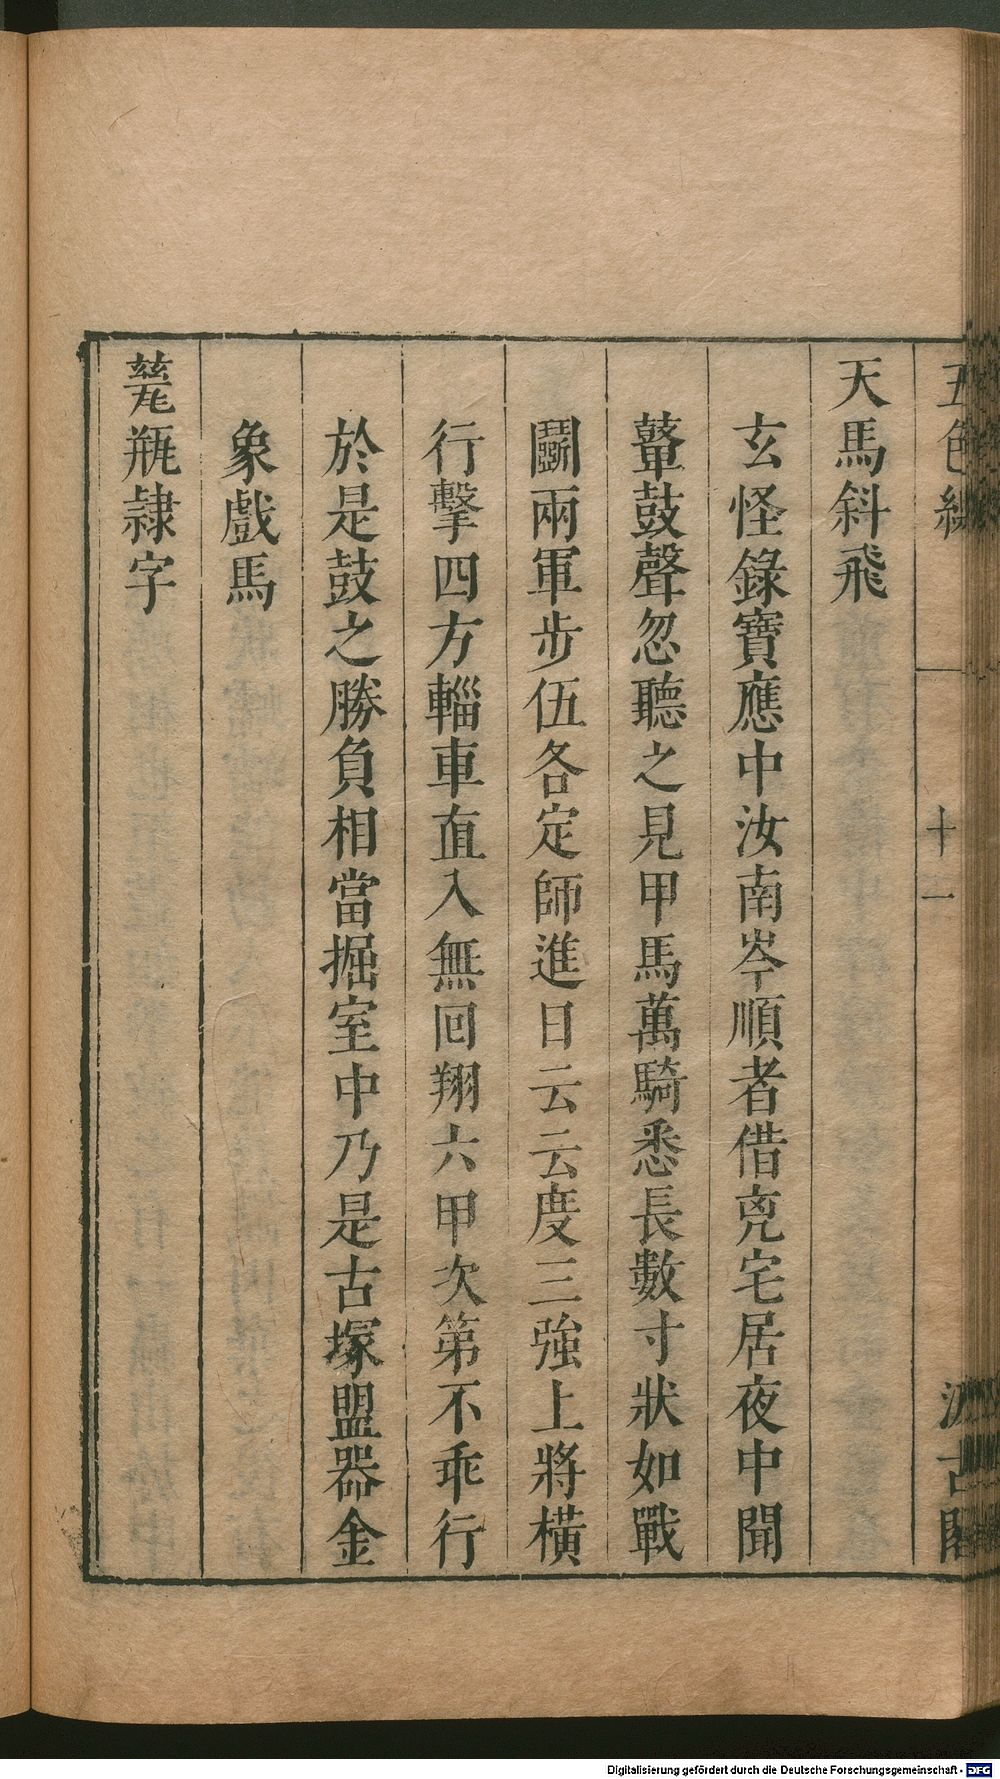 五色線 十一 汲古閣
天馬斜飛
玄怪錄寶應中汝南岑順者借兇宅居夜中聞
鼙鼓聲忽聽之見甲馬萬騎悉長數寸狀如戰
鬬兩軍步伍各定師進日云云度三強上將橫
行擊四方輜車直入無囘翔六甲次第不乖行
於是鼓之勝負相當掘室中乃是古塚盟器金
象戲馬
甆瓶隷字
Digitalisierung gefördert durch die Deutsche Forschungsgemeinschaft - DFG